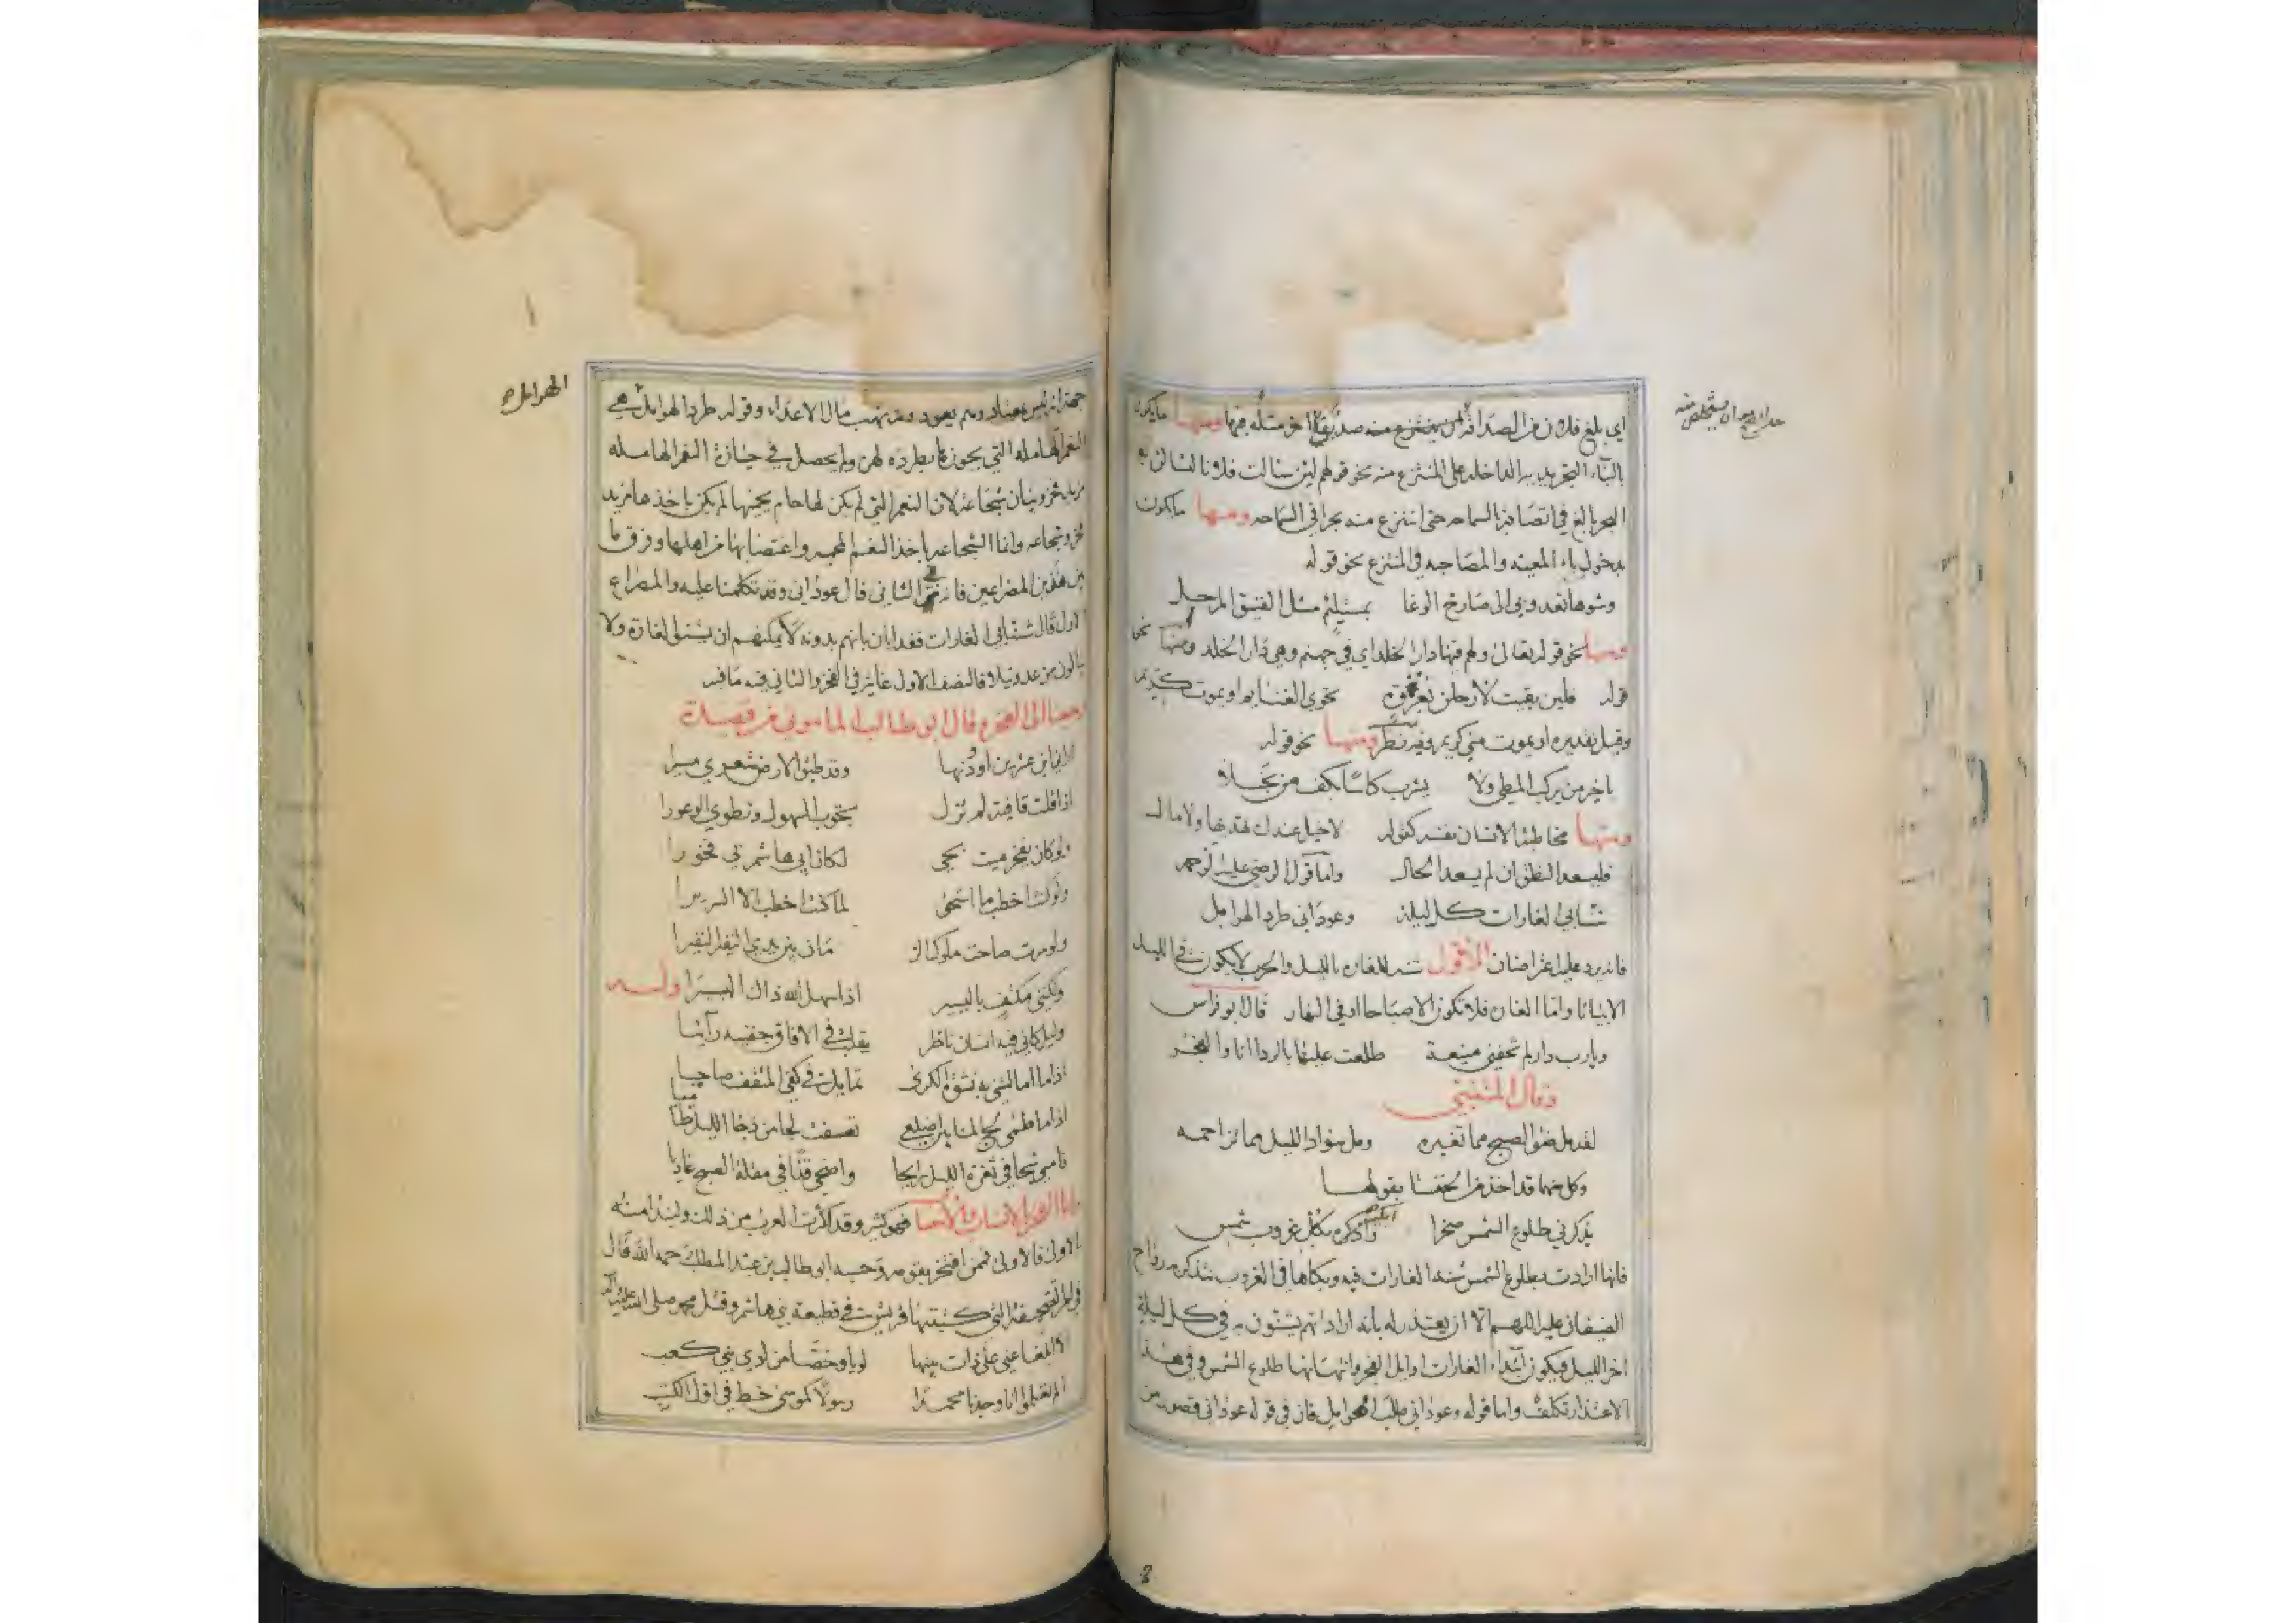 اي بلغ فلان من الصداقة ان ينتزع منه صديقا اخر مثله فيها ومنها مايكون
بالباء التجريديه الداخله على المنتزع منه نحو قولهم لئن سالت فلانا لتسالن به
البحر بالغ في اتصافه بالسماحه حتى انتزع منه بحرا في السماحه ومنها مايكون
بدخول باء المعيته والمصاحبه في المنتزع نحو قوله
وشوهاء تعدو بي الى صارخ الوغا بمستلئم مثل الفنيق المرحل
ومنها نحو قوله تعالى ولهم فيها دار الخلد اي في جهنم وهي دار الخلد ومنها نحو
قوله فلئن بقيت لارحلن بغزوة تحوي الغنايم او يموت كريم
وقيل تقديره او يموت مني كريم وفيه نظر ومنها نحو قوله
ياخير من يركب المطي ولا يشرب كاسا بكف من بخلا
ومنها مخاطبة الانسان نفسه كقوله لاخيل عندك تهديها ولا مال
فليسعد النطق ان لم يسعد الحال واما قول الرضي عليه الرحمه
تشابى الغارات كل ليلة وعوداني طرد الهوامل
فانه يرد عليه اعتراضان الاول شنه للغاره بالليل والحرب لايكون في الليل
الا بياتا واما الغاره فلا تكون الا صباحا او في النهار قال ابو فراس
ويارب دار لم تخفني منيعة طلعت عليها بالردا انا والفجر
وقال المتنبي
لقد مل ضوء الصبح مما تغيره ومل سواد الليل مما تزاحمه
وكل منهما قد اخذ من الخنسا بقولها
يذكرني طلوع الشمس صخرا واذكره بكل غروب شمس
فانها ارادت بطلوع الشمس شنه الغارات فيه وبكاها في الغروب بتذكره رواح
الضيفان عليه اللهم الا ان يعتذر له بانه اراد انهم يشنون في كل ليلة
اخر الليل فيكون ابتداء الغارات اوايل الفجر وانتهائها طلوع الشمس وفي هذا
الاعتذار تكلف واما قوله وعوداني طلب الهوامل فان في قوله عوداني قصور من
جهة انه ليس معتاد ولم يعود ومن نهب مال الاعداء وقوله طرد الهوامل هي
النعم الهامله التي يجوز طرده لهن ولم يحصل في حيازة النعم الهامله
مزيد فخر وبيان شجاعة لان النعم التي لم يكن لها حام يحميها لم يكن ياخذها مزيد
فخر وشجاعه وانما الشجاعه ياخذ النعم المحميه واغتصابها من اهلها وفرق ما
بين هذين المصراعين فانه في الثاني قال عوداني وقد تكلمنا عليه والمصراع
الاول قال شنابي الغارات فقد ابان بانهم بدونه لايمكنهم ان يشنوا الغارة ولا
ينالون من عدو نيلا فالنصف الاول غاية في الفخر والثاني فيه مافيه
رجعنا الى الفخر وقال ابو طالب الماموني من قصيدة
وقد طبق الارض شعري مسيرا
اذا قلت قافية لم تزل تجوب السهول وتطوي الوعورا
ولو كان يفخر ميت بحي لكان ابي هاشم بي فخورا
ولو كنت اخطب ما استحق لما كنت اخطب الا السريرا
ولو سرت صاحت ملوك
ولكنني مكتف باليسير اذا سهل الله ذاك اليسيرا وله
وليل كاني فيه انسان ناظر يقلب في الافاق جفنيه رآئيا
اذا ما امالتني به نشوة الكرى تمايلت في كفي المثقف صاحيا
اذا ما طمى لج المنايا باضلعي تعسفت لجا من دجا الليل طاميا
فامسي شجا في ثغرة الليل رايحا واضحي قذا في مقلة الصبح غاديا
واما الفخر بالانساب والاحساب فهو كثير وقد اكثرت العرب من ذلك ولنبدا منه
الاولى فالاولى فممن افتخر بقومه وحسبه ابو طالب بن عبد المطلب رحمه الله قال
في امر الصحيفة التي كتبتها قريش في قطيعة بني هاشم وقتل محمد صلى الله عليه وآله
الا ابلغا عني على ذات بينها لويا وخصا من لوي بني كعب
الم تعلموا انا وجدنا محمدا رسولا كموسى خط في اول الكتب
الهوامل